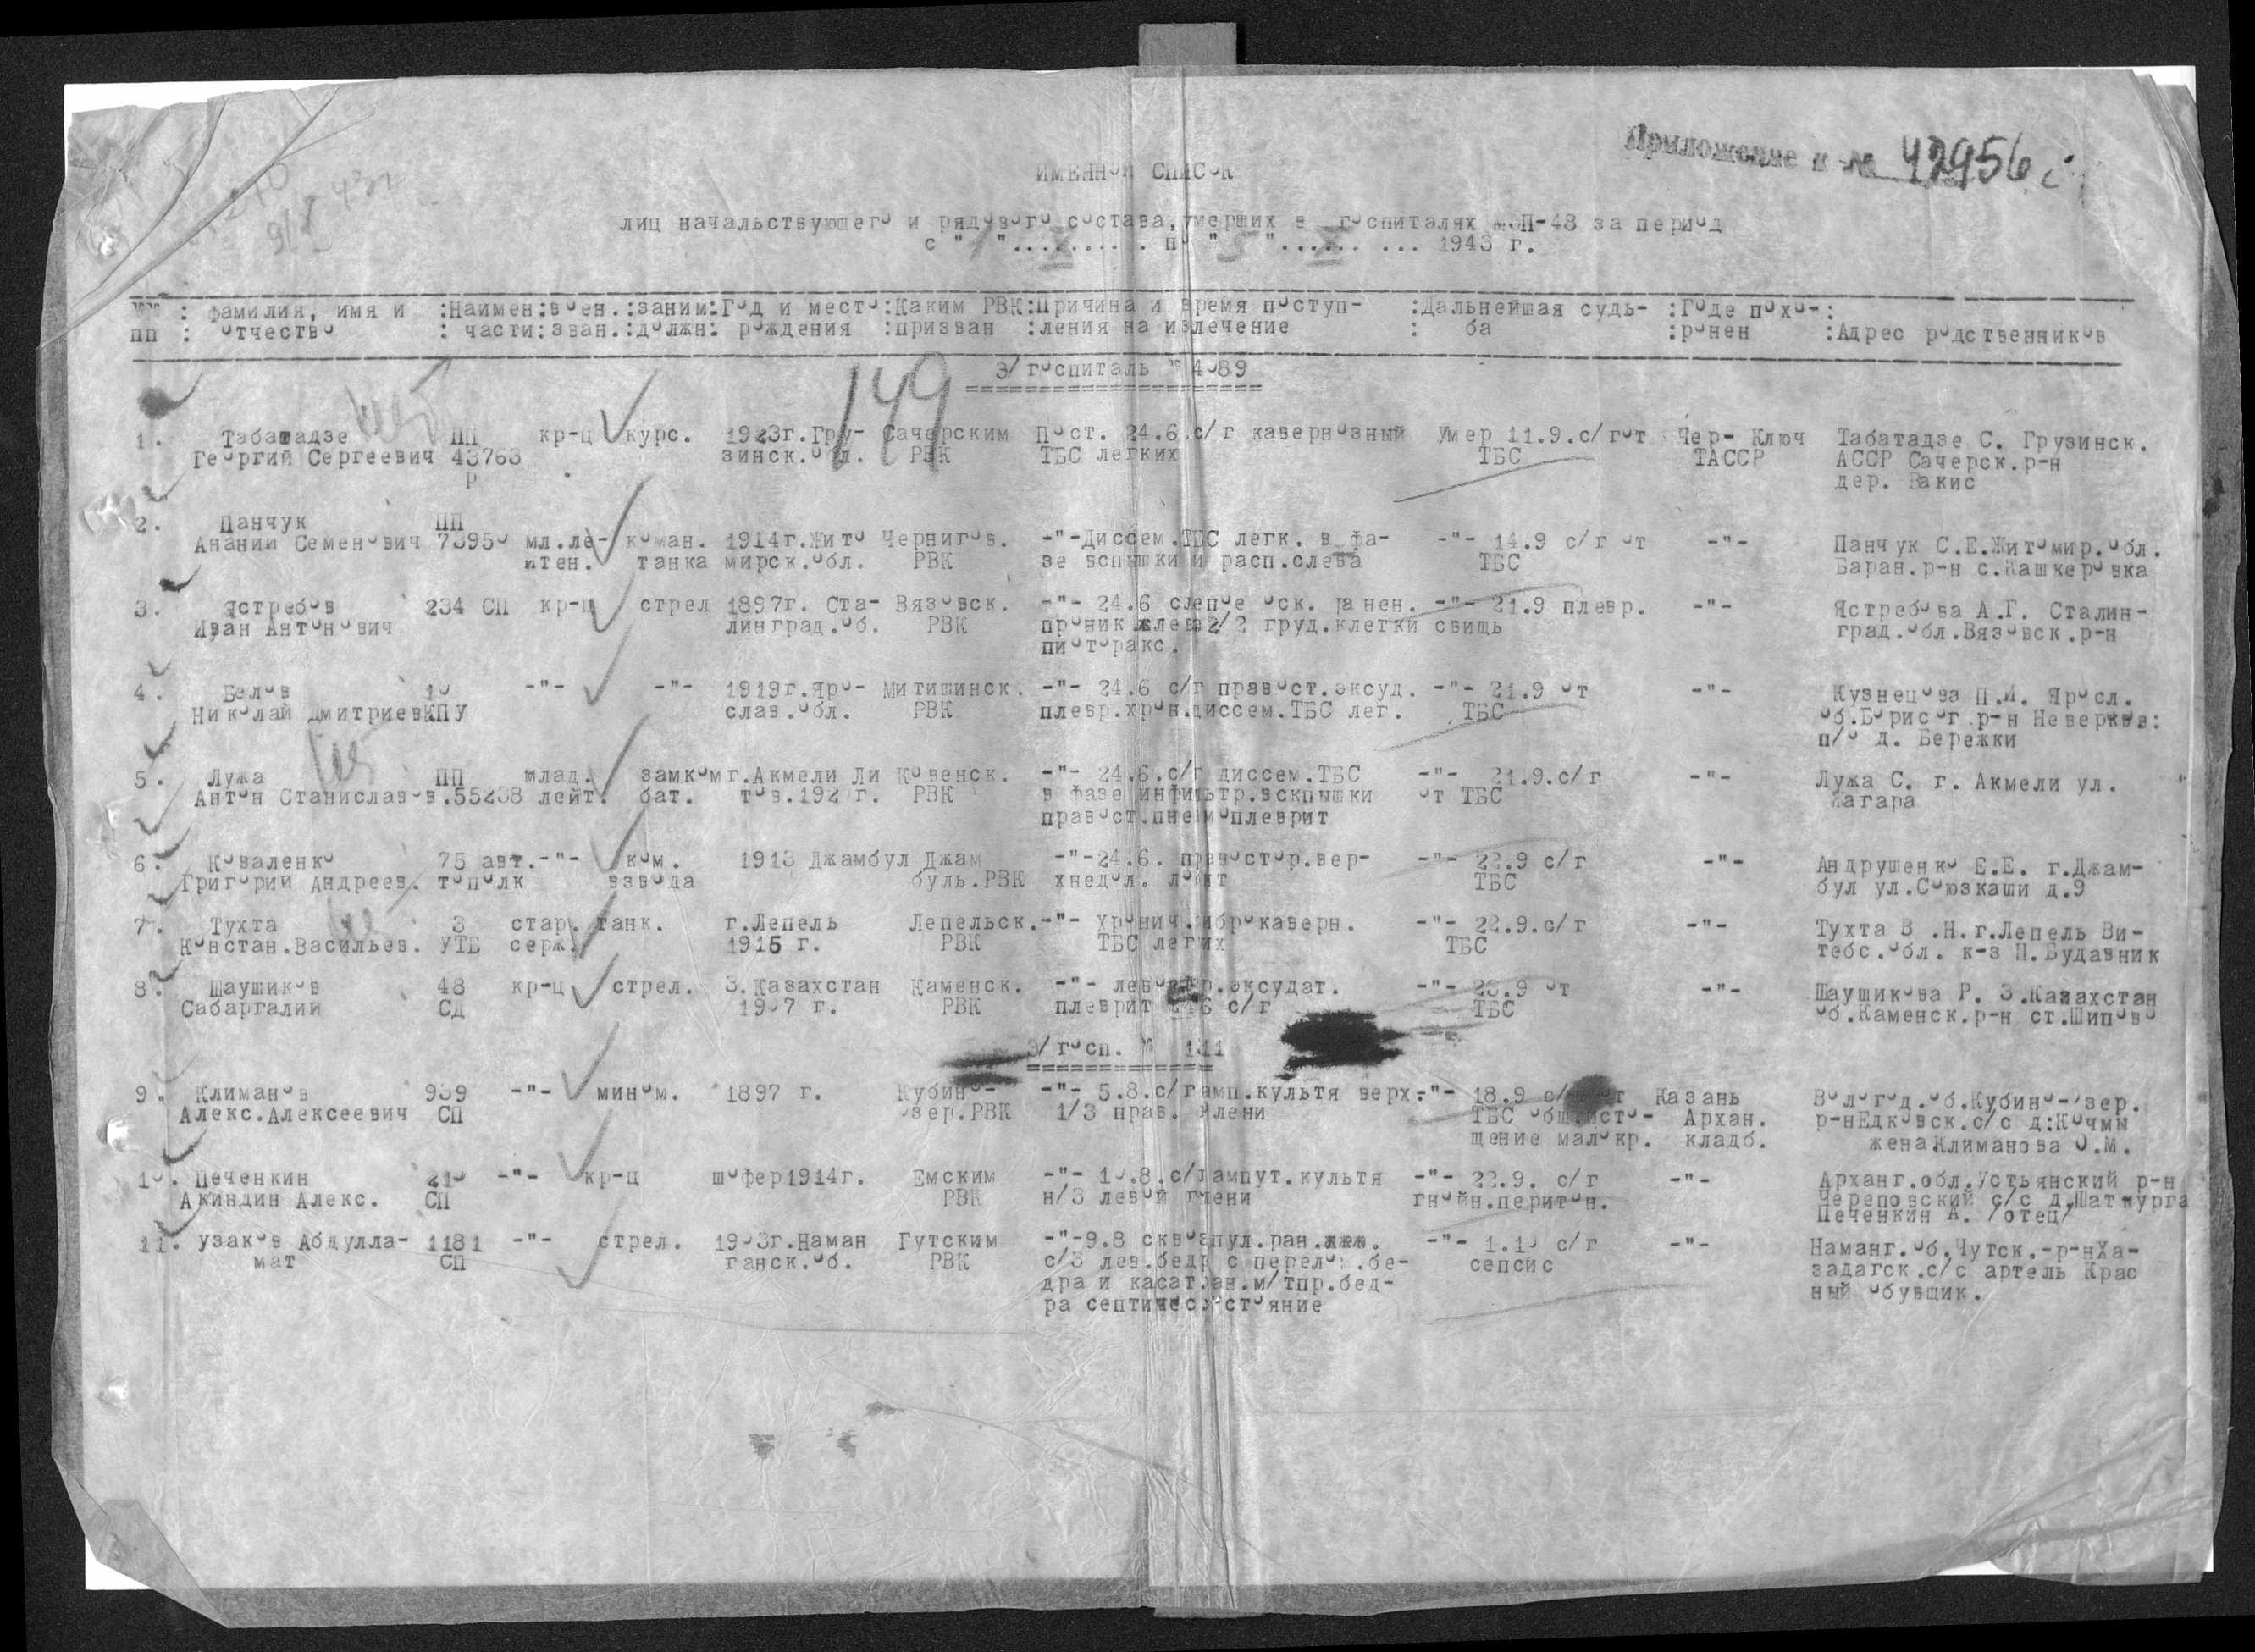 Приложение к № 42956 с
ИМЕННОЙ СПИСОК
лиц начальствующего и рядового состава, умерших в госпиталях МЭП-48 за период
с "1" ... X ... по "5" ... X ... 1943 г.
№№ : фамилия, имя и :Наимен:воен.:заним:Год и место:Каким РВК:Причина и время поступ- :Дальнейшая судь- :Где похо-:
пп : отчество : части:зван.:должн: рождения :призван :ления на излечение : ба :ронен :Адрес родственников
Э/госпиталь № 4089
149
1. Табатадзе ПП кр-ц курс. 1923г.Гру- Сачерским Пост. 24.6.с/г кавернозный Умер 11.9.с/г от Чер- Ключ Табатадзе С. Грузинск.
Георгий Сергеевич 43763 зинск.обл. РВК ТБС легких ТБС ТАССР АССР Сачерск.р-н
р дер. Вакис
2. Панчук ПП
Ананий Семенович 73950 мл.ле- коман. 1914г.Жито Чернигов. -"-Диссем.ТБС легк. в фа- -"- 14.9 с/г от -"- Панчук С.Е.Житомир.обл.
йтен. танка мирск.обл. РВК зе вспышки и расп.слева ТБС Баран.р-н с.Кашкеровка
3. Ястребов 234 СП кр-ц стрел 1897г. Ста- Вязовск. -"- 24.6 слепое оск. ранен. -"- 21.9 плевр. -"- Ястребова А.Г. Сталин-
Иван Антонович линград.об. РВК проник 1/2 груд.клетки свищь град.обл.Вязовск.р-н
пиоторакс.
4. Белов 10 -"- -"- 1919г.Яро- Митишинск. -"- 24.6 с/г правост.эксуд. -"- 21.9 от -"- Кузнецова П.И. Яросл.
Николай Дмитриев КПУ слав.обл. РВК плевр.хрон.диссем.ТБС лег. ТБС об.Борисог.р-н Неверков:
п/о д. Бережки
5. Лужа ПП млад. замком г.Акмели Ли Ковенск. -"- 24.6.с/г диссем.ТБС -"- 21.9.с/г -"- Лужа С. г. Акмели ул.
Антон Станиславов.55238 лейт. бат. тов.192 г. РВК в фазе инфильтр.вскпышки от ТБС Жагара
правост.пнемоплеврит
6. Коваленко 75 авт.-"- ком. 1913 Джамбул Джам -"-24.6. правостор.вер- -"- 22.9 с/г -"- Андрушенко Е.Е. г.Джам-
Григорий Андреев. тополк взвода буль.РВК хнедол. лобит ТБС бул ул.Союзкаши д.9
7. Тухта 3 стар. танк. г.Лепель Лепельск.-"- Хронич.фиброкаверн. -"- 22.9.с/г -"- Тухта В .Н.г.Лепель Ви-
Констан.Васильев. УТБ серж. 1915 г. РВК ТБС легих ТБС тебс.обл. к-з П.Будавник
8. Шаушиков 48 кр-ц стрел. З.Казахстан Каменск. -"- левостор.эксудат. -"- 23.9 от -"- Шаушикова Р. З.Казахстан
Сабаргалии СД 1907 г. РВК плеврит 24.6 с/г ТБС об.Каменск.р-н ст.Шипово
Э/госп. № 111
9. Климанов 939 -"- мином. 1897 г. Кубино- -"- 5.8.с/г амп.культя верх.-"- 18.9 с/г от Казань Вологод.об.Кубино-озер.
Алекс.Алексеевич СП озер.РВК 1/3 прав. глени ТБС общ.исто- Архан. р-нЕдковск.с/с д:Кочмы
щение малокр. кладб. жена Климанова О.М.
10. Печенкин 210 -"- кр-ц шофер1914г. Емским -"- 10.8.с/г ампут.культя -"- 22.9. с/г -"- Арханг.обл.Устьянский р-н
Акиндин Алекс. СП РВК н/3 левой глени гнойн.перитон. Череповский с/с д.Шаткурга
Печенкин А. /отец/
11. Узаков Абдулла- 1181 -"- стрел. 1903г.Наман Гутским -"-9.8 сквозпул.ран. -"- 1.10 с/г -"- Наманг.об.Чутск.-р-нХа-
мат СП ганск.об. РВК с/3 лев.бедр с перелом.бе- сепсис задагск.с/с артель Крас
дра и касат.ран.м/тпр.бед- ный обувщик.
ра септичес.стояние